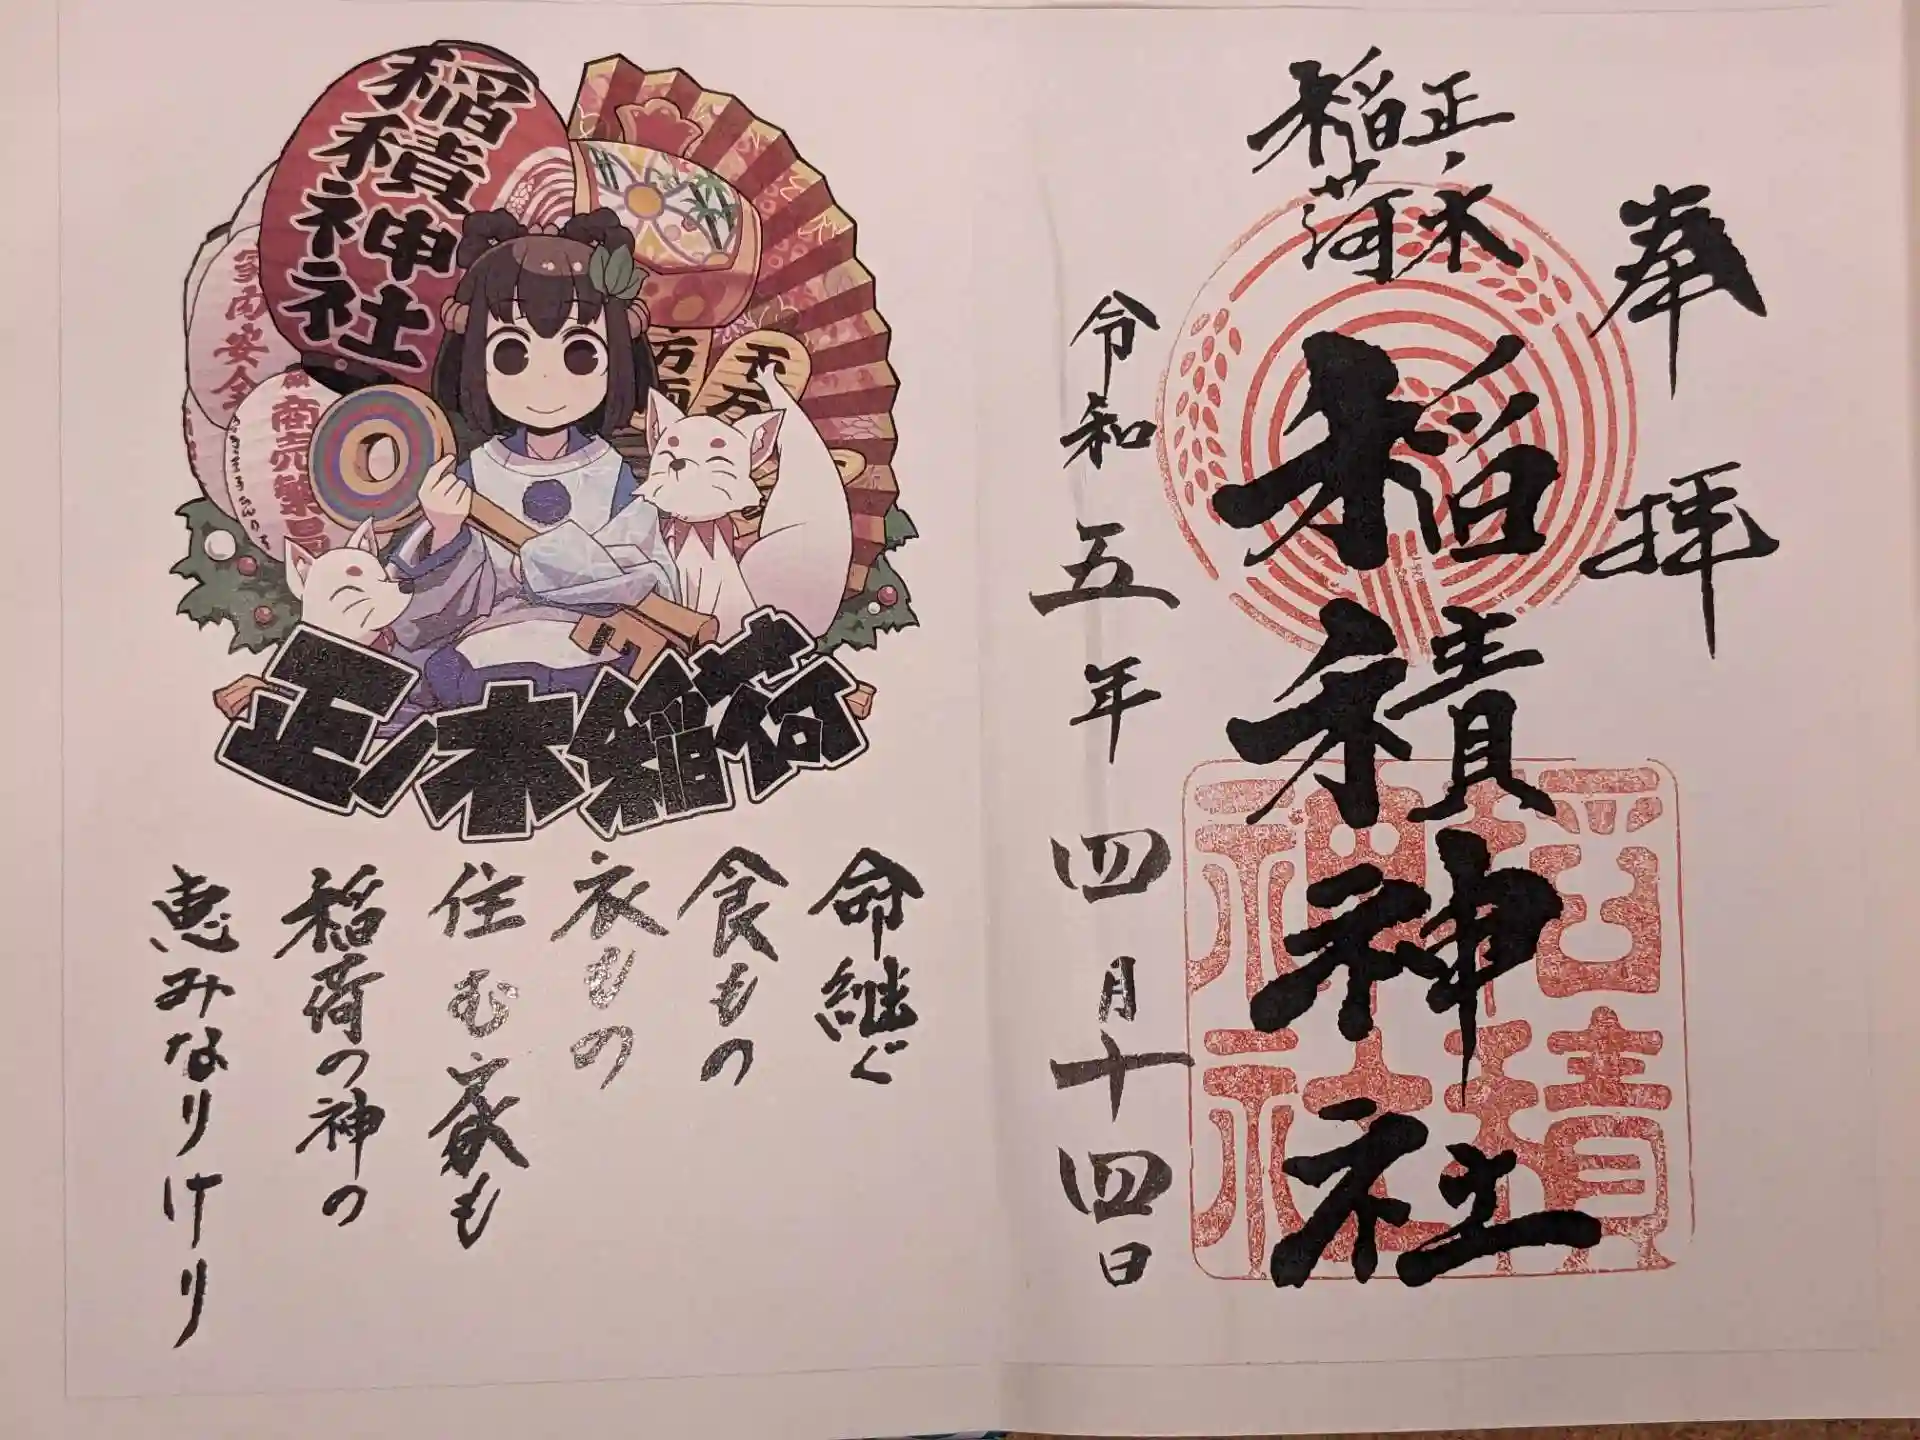 奉拝
正ノ木
稲荷
稲積神社
稲積
神社
令和五年四月十四日
稲積神社
家内安全
商売繁昌
千万
万両
正ノ木稲荷
命継ぐ
食もの
衣もの
住む家も
稲荷の神の
恵みなりけり